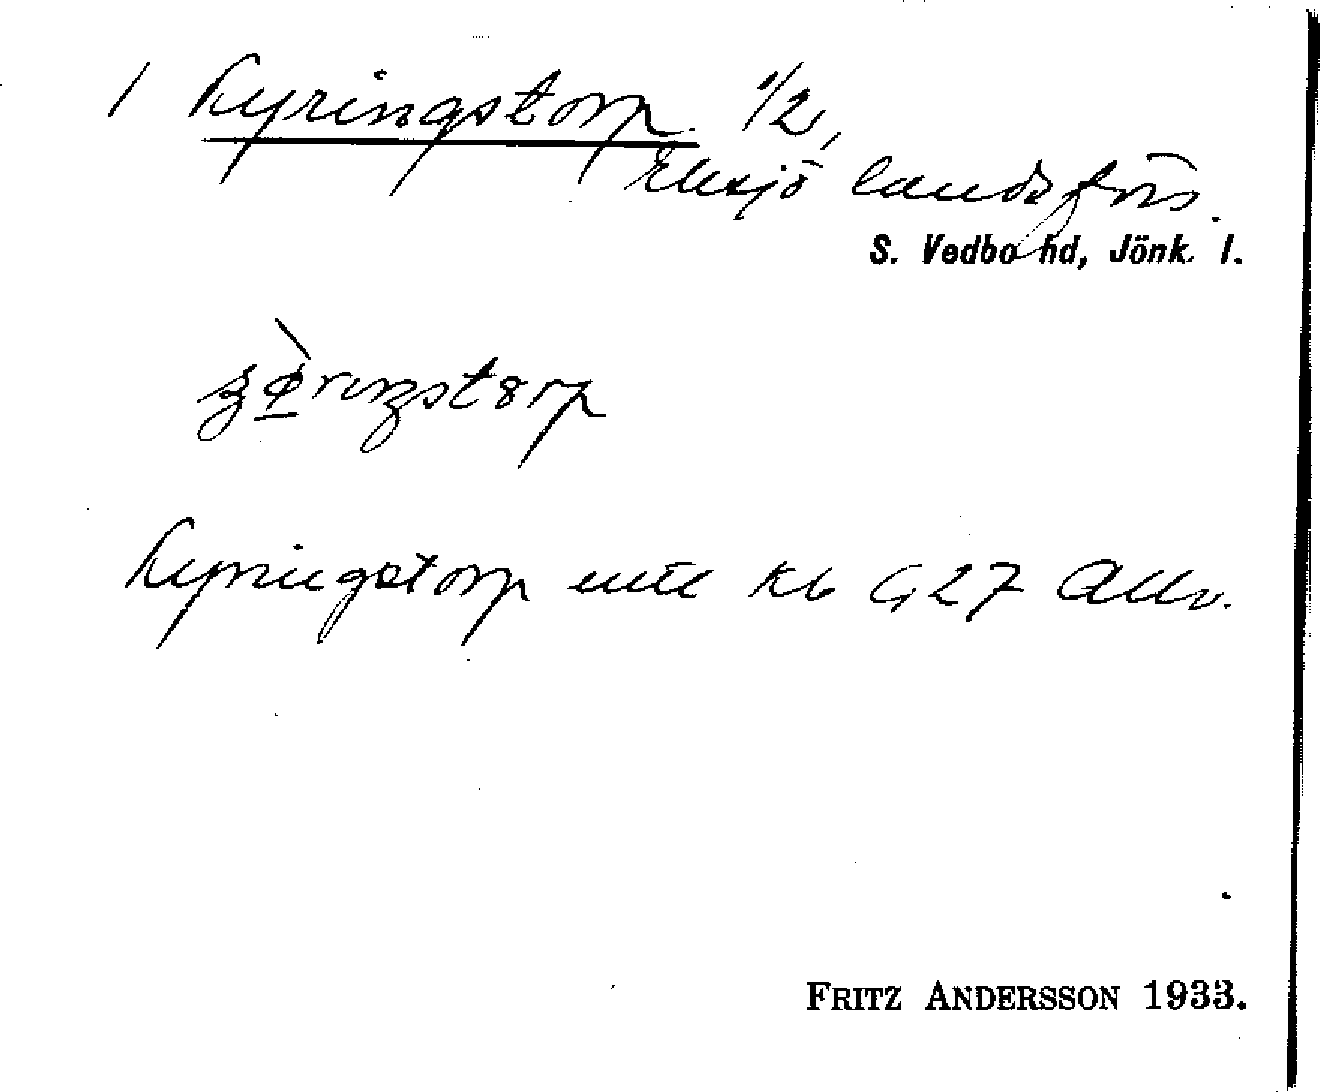 1 Kyringstorp 1/2,
Eksjö landsförs.
S. Vedbo hd, Jönk. l.
Kyringstorp mtl Kb G27 Allv.
FRITZ ANDERSSON 1933.